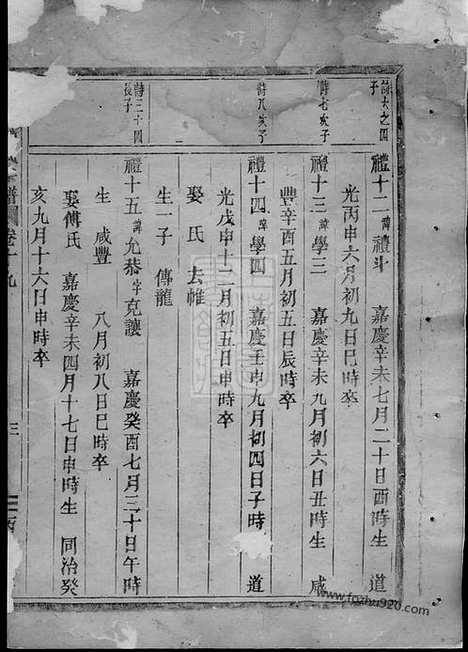 詩大之四
子
禮十二諱禮斗 嘉慶辛未七月二十日酉時生 道
光丙申六月初九日巳時卒
詩七次子
禮十三諱學三 嘉慶辛未九月初六日丑時生 咸
豐辛酉五月初五日辰時卒
詩八次子
禮十四諱學四 嘉慶壬申九月初四日子時 道
光戊申十二月初五日申時卒
娶 氏 去帷
生一子 傳龍
詩三十四
長子
禮十五諱允恭字克讓 嘉慶癸酉七月三十日午時
生 咸豐 八月初八日巳時卒
娶傅氏 嘉慶辛未四月十七日申時生 同治癸
亥九月十六日申時卒
譜 卷十九
三
www.fozhu920.com